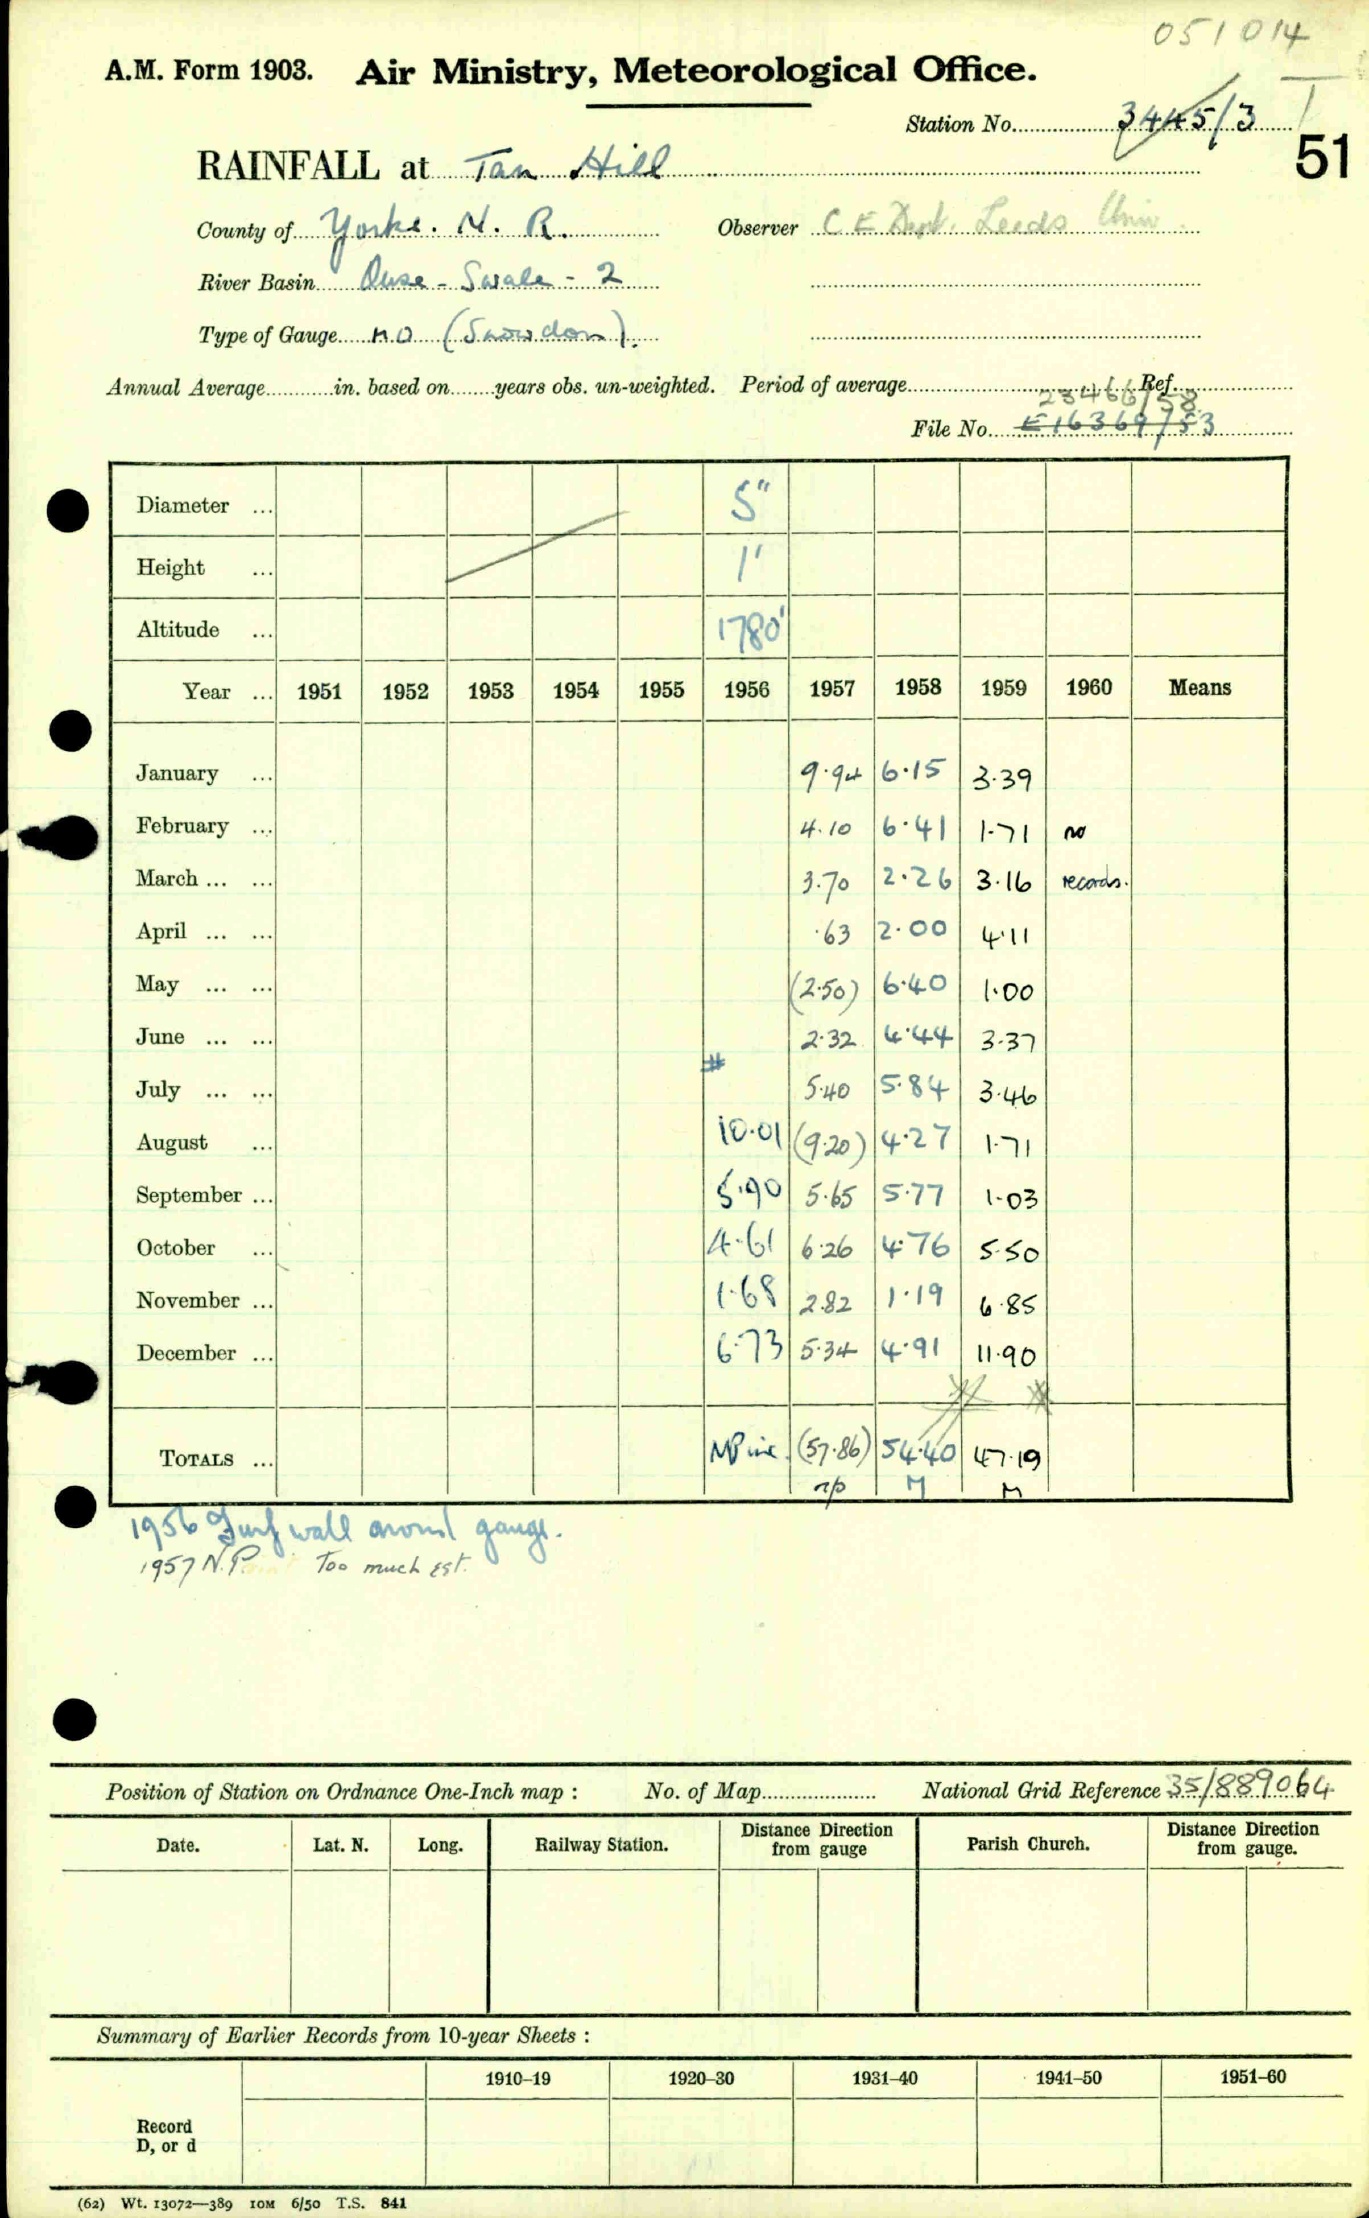 051014
A.M. Form 1903. Air Ministry, Meteorological Office.
Station No. 3445/3
1
51
RAINFALL at Tan Hill
County of Yorks. N. R. Observer C E Dept. Leeds Univ.
River Basin Ouse - Swale - 2
Type of Gauge MO (Snowdon).
Annual Average............in. based on........years obs. un-weighted. Period of average..................Ref.
23466/58
File No. E16369/53
Diameter ... 5"
Height ... 1'
Altitude ... 1780'
Year ... 1951 1952 1953 1954 1955 1956 1957 1958 1959 1960 Means
January ... 9.94 6.15 3.39
February ... 4.10 6.41 1.71 no
March ... ... 3.70 2.26 3.16 records.
April ... ... .63 2.00 4.11
May ... ... (2.50) 6.40 1.00
June ... ... 2.32 4.44 3.37
July ... ... 5.40 5.84 3.46
August ... 10.01 (9.20) 4.27 1.71
September ... 5.90 5.65 5.77 1.03
October ... 4.61 6.26 4.76 5.50
November ... 1.68 2.82 1.19 6.85
December ... 6.73 5.34 4.91 11.90
TOTALS ... NP inc. (57.86) 54.40 47.19
np M M
1956 Turf wall around gauge.
1957 N.P. Too much est.
Position of Station on Ordnance One-Inch map : No. of Map.................... National Grid Reference 35/889064
Date. Lat. N. Long. Railway Station. Distance from Direction gauge Parish Church. Distance from Direction gauge.
Summary of Earlier Records from 10-year Sheets :
1910–19 1920–30 1931–40 1941–50 1951–60
Record
D, or d
(62) Wt. 13072—389 10M 6/50 T.S. 841